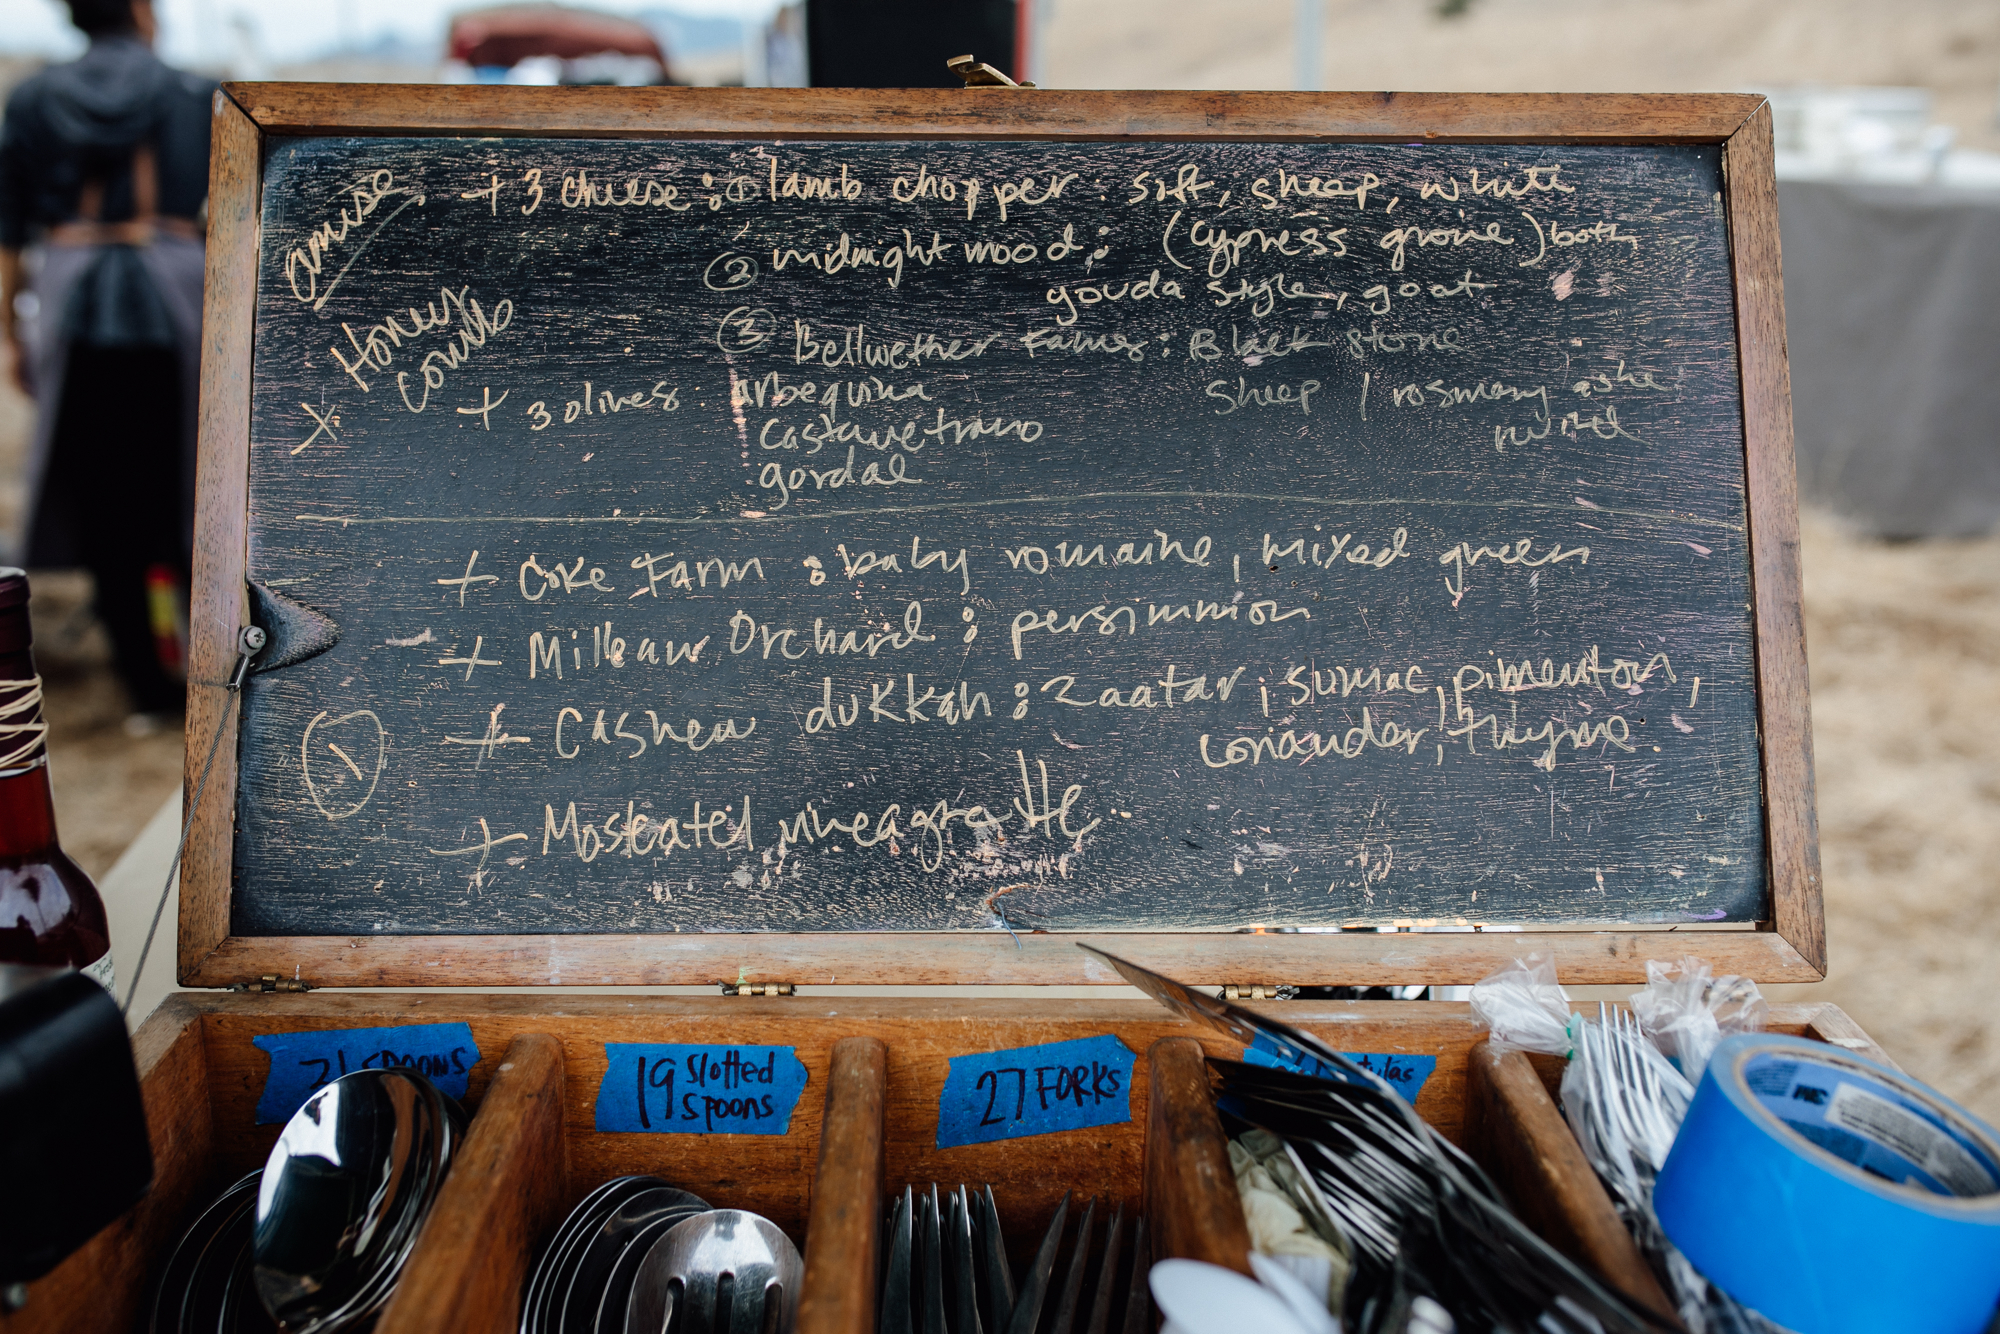 amuse
+ 3 cheese : ① lamb chopper : soft, sheep, white
② midnight moon : (cypress grove) both
gouda style, goat
③ Bellwether Farms : Black stone
sheep / rosemary ashe
rind
Honey
comb
X
+ 3 olives : arbequina
Castelvetrano
gordal
①
+ Coke Farm : baby romaine, mixed green
+ Orchard : persimmion
+ Cashew dukkah : zaatar, sumac, pimenton,
coriander, thyme.
+ Moscatel vineagrette
21 SPOONS
19 slotted
spoons
27 FORKS
3M